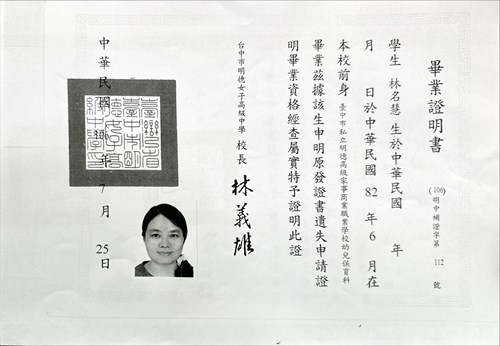 畢業證明書
(106)明中補證字第 112 號
學生 林名慧 生於中華民國 年
月 日於中華民國 82 年 6 月在
本校前身臺中市私立明德高級家事商業職業學校幼兒保育科
畢業茲據該生申明原發證書遺失申請證
明畢業資格經查屬實特予證明此證
台中市明德女子高級中學 校長 林義雄
中華民國 年 7 月 25 日